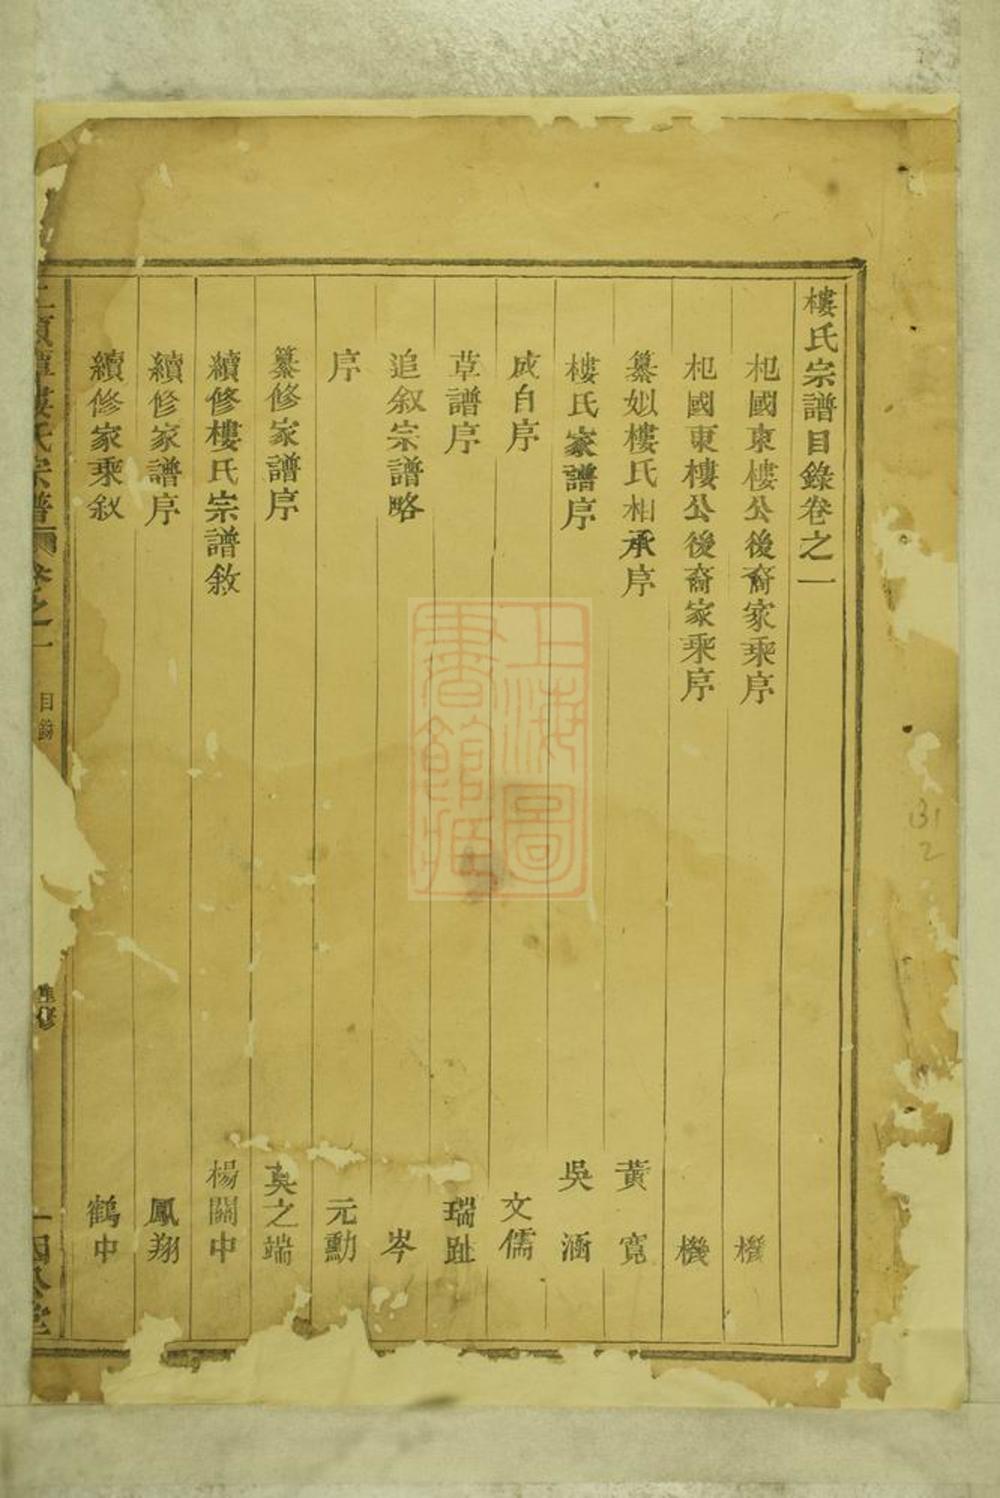 樓氏宗譜目錄卷之一
杞國東樓公後裔家乘序 機
杞國東樓公後裔家乘序 機
纂姒樓氏相承序 黃寬
樓氏家譜序 吳涵
成自序 文儒
草譜序 瑞趾
追叙宗譜略 岑
序 元勳
纂修家譜序 吳之端
續修樓氏宗譜敘 楊關中
續修家譜序 鳳翔
續修家乘叙 鶴中
樓氏宗譜 卷之一 目錄 修
上海圖書館藏
131
2